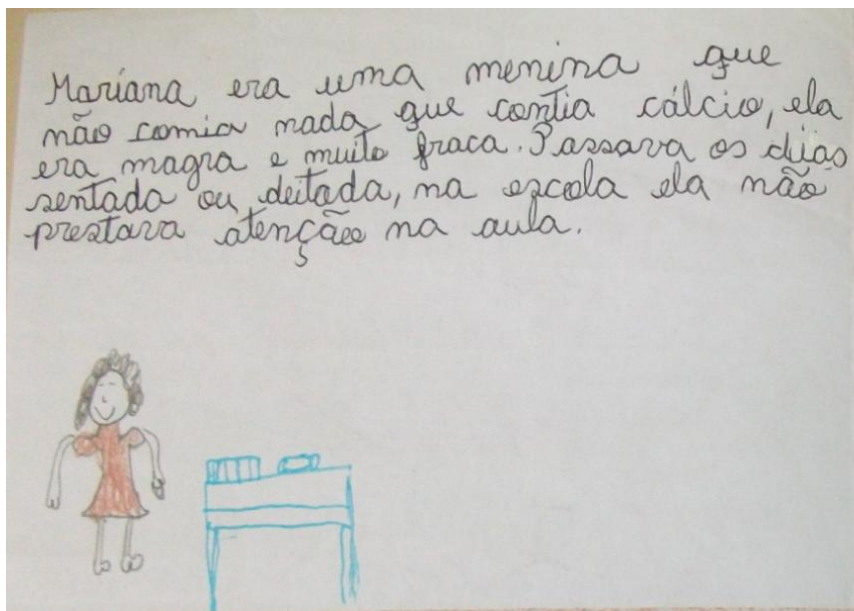 Mariana era uma menina que
não comia nada que contia cálcio, ela
era magra e muito fraca. Passava os dias
sentada ou deitada, na escola ela não
prestava atenção na aula.